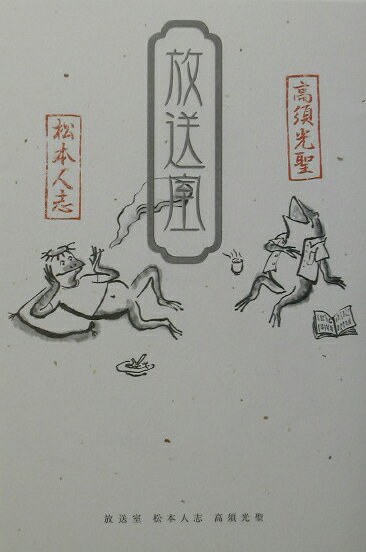 放送室
高須光聖
松本人志
放送室 松本人志 高須光聖